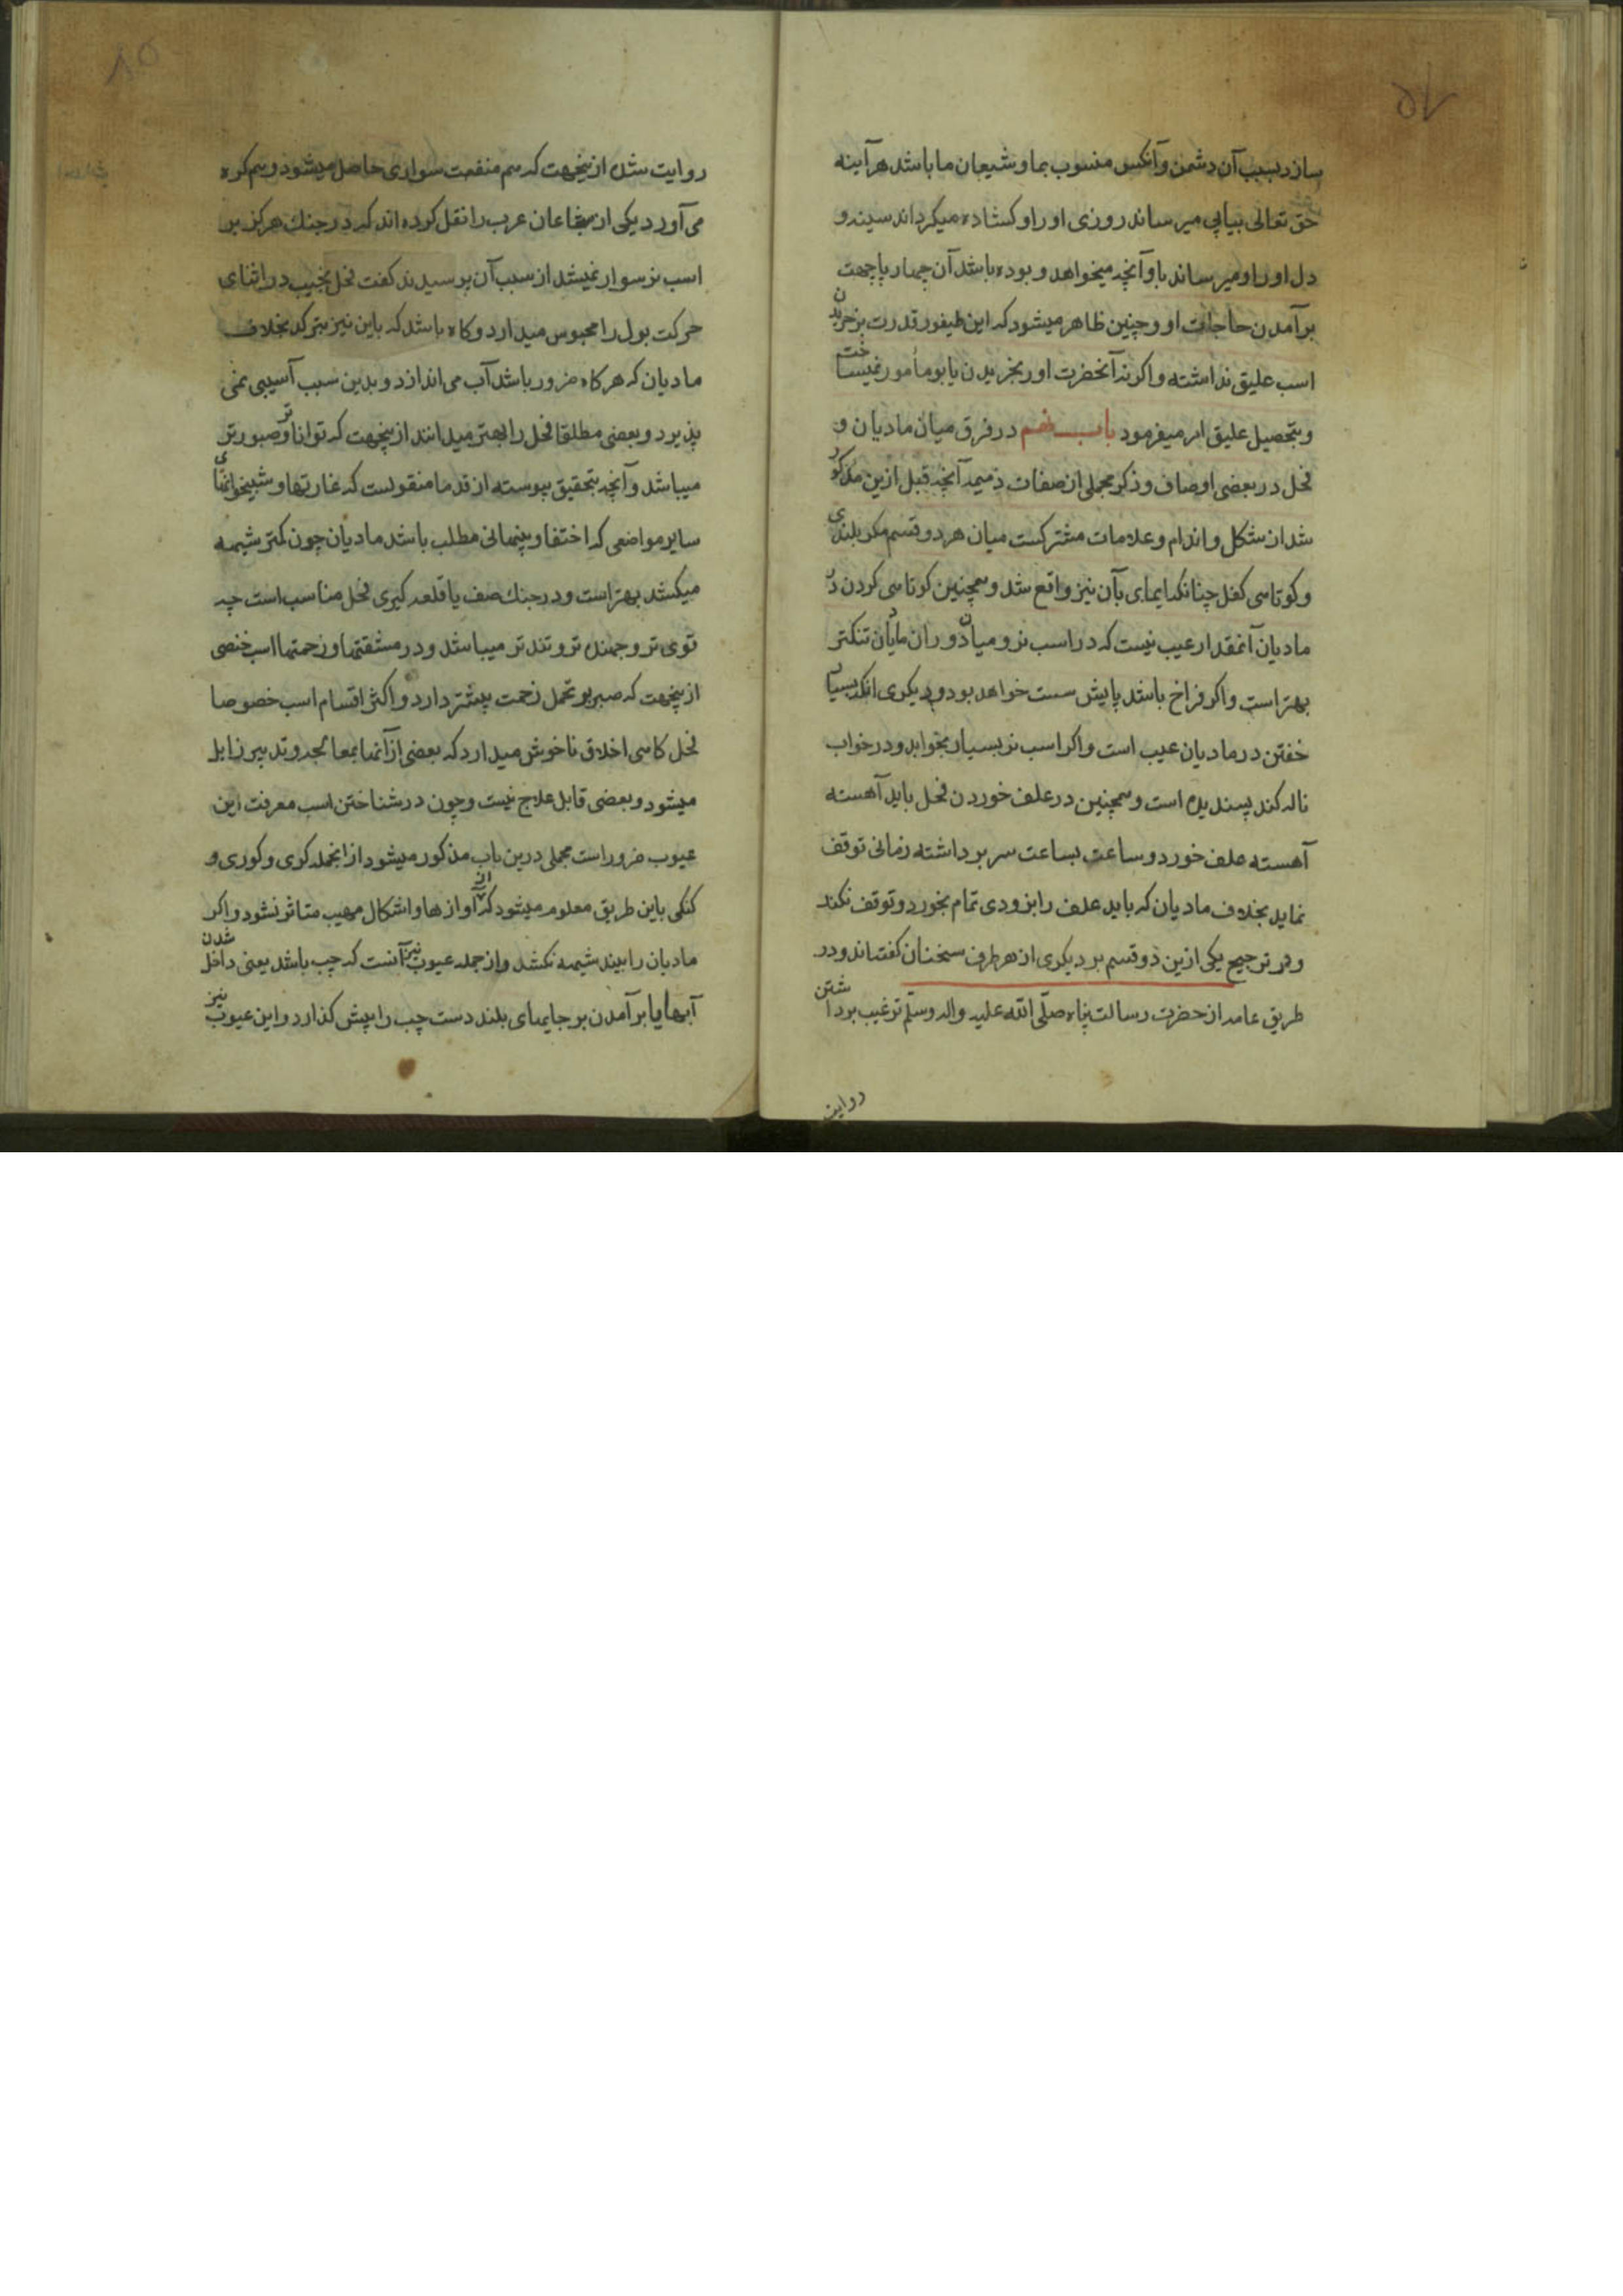 سازد بسبب آن دشمن و آنکس منسوب بما و شیعان ما باشد هرآینه
حق تعالی پیاپی میرساند روزی او را و کشاده میکرداند سینه و
دل او را و میرساند باو آنچه میخواهد و بوده باشد آن چهارپا جهت
برآمدن حاجات او و چنین ظاهر میشود که این طیفور قدرت بر خریدن
اسب علیق نداشته و اکرنه آنحضرت او ربخریدن یابو مامور نمیساخت
و بتحصیل علیق امر میفرمود باب نهم در فرق میان مادیان و
فحل در بعضی اوصاف و ذکر مجملی از صفات ذمیمه آنچه قبل ازین مذکور
شد از شکل و اندام و علامات مشترکست میان هر دو قسم مکر بلندی
و کوتاهی کفل چنانکه ایمای بآن نیز واقع شد و همچنین کوتاهی کردن در
مادیان آنمقدار عیب نیست که در اسب نر و میان دو ران مادیان تنکتر
بهتر است و اکر فراخ باشد پایش سست خواهد بود و دیکری انکه بسیار
خفتن در مادیان عیب است و اکر اسب نر بسیار بخوابد و در خواب
ناله کند پسندیده است و همچنین در علف خوردن فحل باید آهسته
آهسته علف خورد و ساعت بساعت سر برداشته زمانی توقف
نماید بخلاف مادیان که باید علف را بزودی تمام بخورد و توقف نکند
و در ترجیح یکی ازین دو قسم بر دیکری از هر طرف سخنان کفته‌اند و در
طریق عامه از حضرت رسالت پناه صلّی الله علیه واله وسلّم ترغیب برداشتن
روایت
روایت شده ازینجهت که هم منفعت سواری حاصل میشود و هم کره
می‌آورد یکی از شجاعان عرب را نقل کرده‌اند که در جنک هرکز بر
اسب نر سوار نمیشد از سبب آن پرسیدند کفت فحل نجیب در اثنای
حرکت بول را محبوس میدارد و کاه باشد که باین نیز بترکد بخلاف
مادیان که هرکاه ضرور باشد آب می‌اندازد و بدین سبب آسیبی نمی
پذیرد و بعضی مطلقا فحل را بهتر میدانند ازینجهت که تواناتر و صبورتر
میباشد و آنچه بتحقیق پیوسته از قدما منقولست که غارتها و شبیخوانهای
سایر مواضعی که اختفا و پنهانی مطلب باشد مادیان چون کمتر شیهه
میکشد بهتر است و در جنک صف یا قلعه کیری فحل مناسب است چه
قوی تر و جهنده تر و تندتر میباشد و در مشقتها و زحمتها اسب خصی
ازینجهت که صبر بر تحمل زحمت بیشتر دارد و اکثر اقسام اسب خصوصا
فحل کاهی اخلاق ناخوش میدارد که بعضی از آنها بمعالجه و تدبیر زایل
میشود و بعضی قابل علاج نیست و چون در شناختن اسب معرفت این
عیوب ضرور است مجملی درین باب مذکور میشود از انجمله کری و کوری و
کنکی باین طریق معلوم میشود که از آوازها و اشکال مهیب متاثر نشود و اکر
مادیان را بیند شیهه نکشد و از جمله عیوب نیز آنست که چپ باشد یعنی داخل شدن
آبها یا برآمدن بر جایهای بلند دست چپ را پیش کذارد و این عیوب نیز